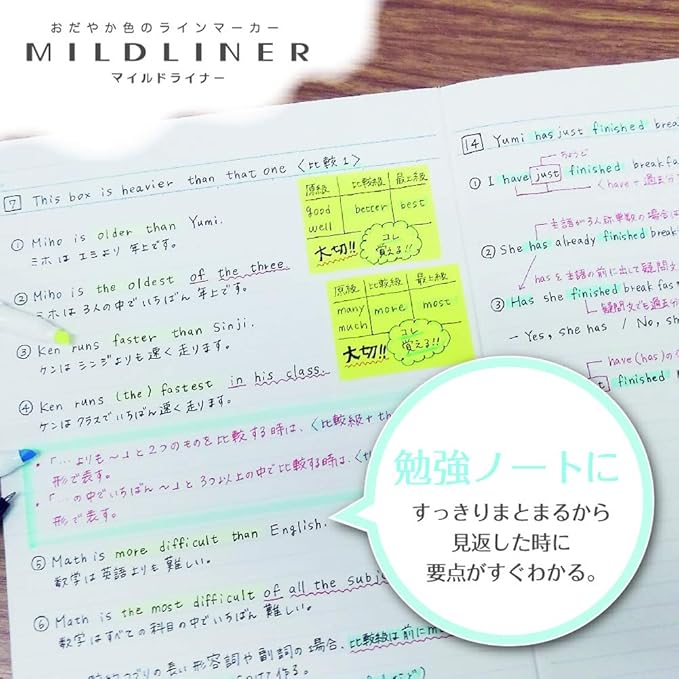 おだやか色のラインマーカー
MILDLINER
マイルドライナー
7 This box is heavier than that one 〈比較1〉
① Miho is older than Yumi.
ミホは エミより 年上です。
② Miho is the oldest of the three.
ミホは 3人の中でいちばん 年上です。
③ Ken runs faster than Sinji.
ケンは シンジよりも 速く 走ります。
④ Ken runs (the) fastest in his class.
ケンは クラスで いちばん 速く 走ります。
・「…よりも～」と2つのものを比較する時は、〈比較級+th
形で表す。
・「…の中でいちばん～」と3つ以上の中で比較する時は、〈th
形で表す。
⑤ Math is more difficult than English.
数学は 英語よりも 難しい。
⑥ Math is the most difficult of all the subj
数学は すべての 科目の中で いちばん 難しい。
の長い 形容詞や 副詞の場合、比較級は前にm
作る。
原級 比較級 最上級
good better best
well
大切!! コレ
覚える!!
原級 比較級 最上級
many more most
much
大切!! コレ
覚える!!
14 Yumi has just finished brea
ちょうど
① I have just finished breakfa
〈have+過去分
主語が3人称単数の場合は
② She has already finished break
hasを主語の前に出して疑問文
③ Has she finished breakfas
疑問文でも過去分
- Yes, she has / No, sh
have(has)の
finished
勉強ノートに
すっきりまとまるから
見返した時に
要点がすぐわかる。